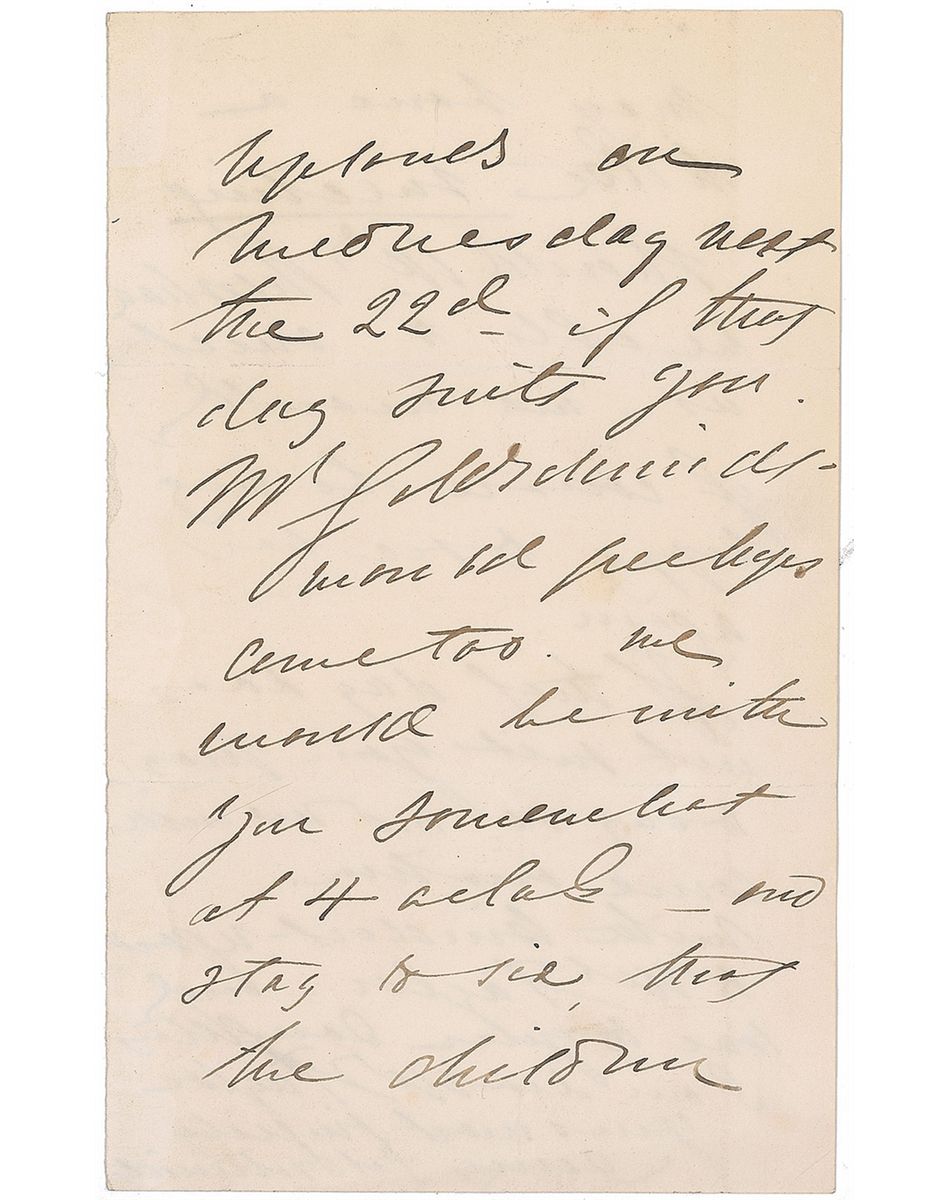 Uplands on
Wednesday next
the 22d if that
day suits you.
Mr Goldschmidt
would perhaps
come too. We
would be with
you somewhat
at 4 oclock – and
stay to six, that
the children